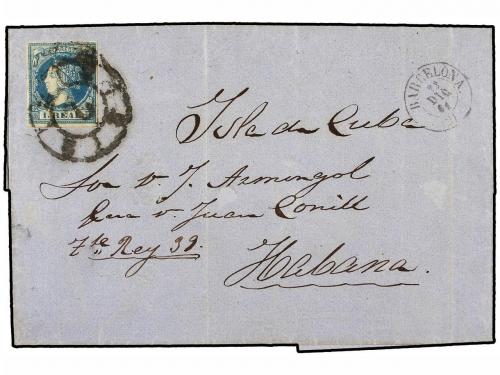 1 REAL
BARCELONA
DIC
61
Isla de Cuba
Son v. J. Armengol
Gua v. Juan Conill
Tte Rey 39.
Habana.